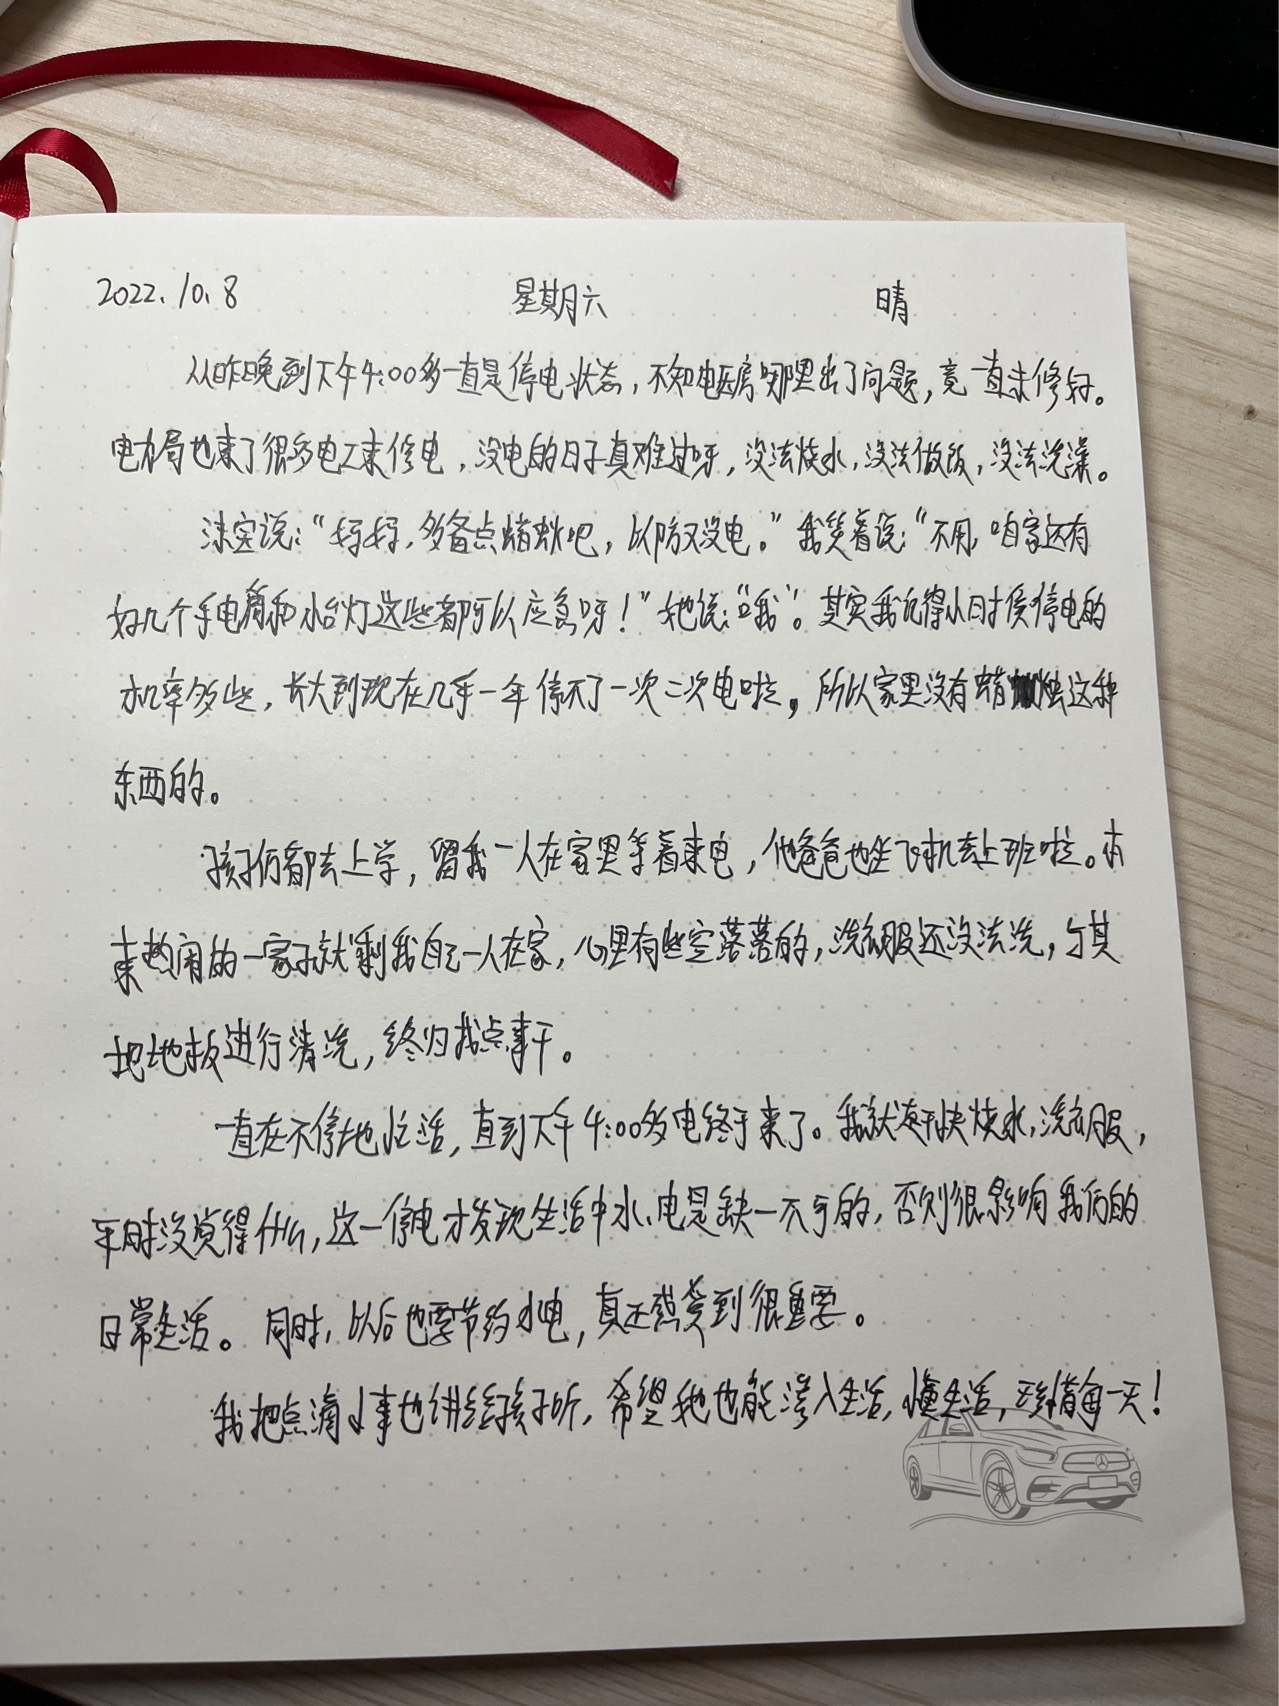 2022.10.8 星期六 晴
从昨晚到下午4:00多一直是停电状态，不知电房哪里出了问题，竟一直未修好。
电力局也来了很多电工来修电，没电的日子真难过呀，没法烧水，没法做饭，没法洗澡。
沫宝说：“妈妈，多备点蜡烛吧，以防又没电。”我笑着说：“不用，咱家还有
好几个手电筒和小台灯这些都可以应急呀！”她说：“哦”。其实我记得小时侯停电的
机率多些，长大到现在几乎一年停不了一次二次电啦，所以家里没有蜡烛这种
东西的。
孩子们都去上学，留我一人在家里等着来电，他爸爸也坐飞机去上班啦。本
来热闹的一家子就剩我自己一人在家，心里有些空落落的，洗衣服还没法洗，与其
把地板进行清洗，终归找点事干。
一直在不停地忙活，直到下午4:00多电终于来了。我就赶快烧水，洗衣服，
平时没觉得什么，这一停电才发现生活中水、电是缺一不可的，否则很影响我们的
日常生活。同时，以后也要节约水电，真正感觉到很重要。
我把点滴小事也讲给孩子听，希望她也能渗入生活，懂生活，珍惜每一天！